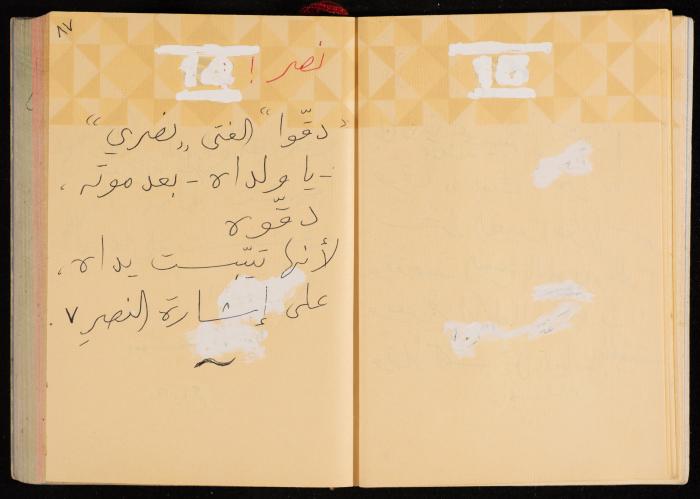 ٨٧
نصر !
14
"دقّوا" الفتى „نصري"
- يا ولداه - بعد موته .
دقّوه
لأنها تيبّست يداه .
على إشارة النصر ٧ .
15